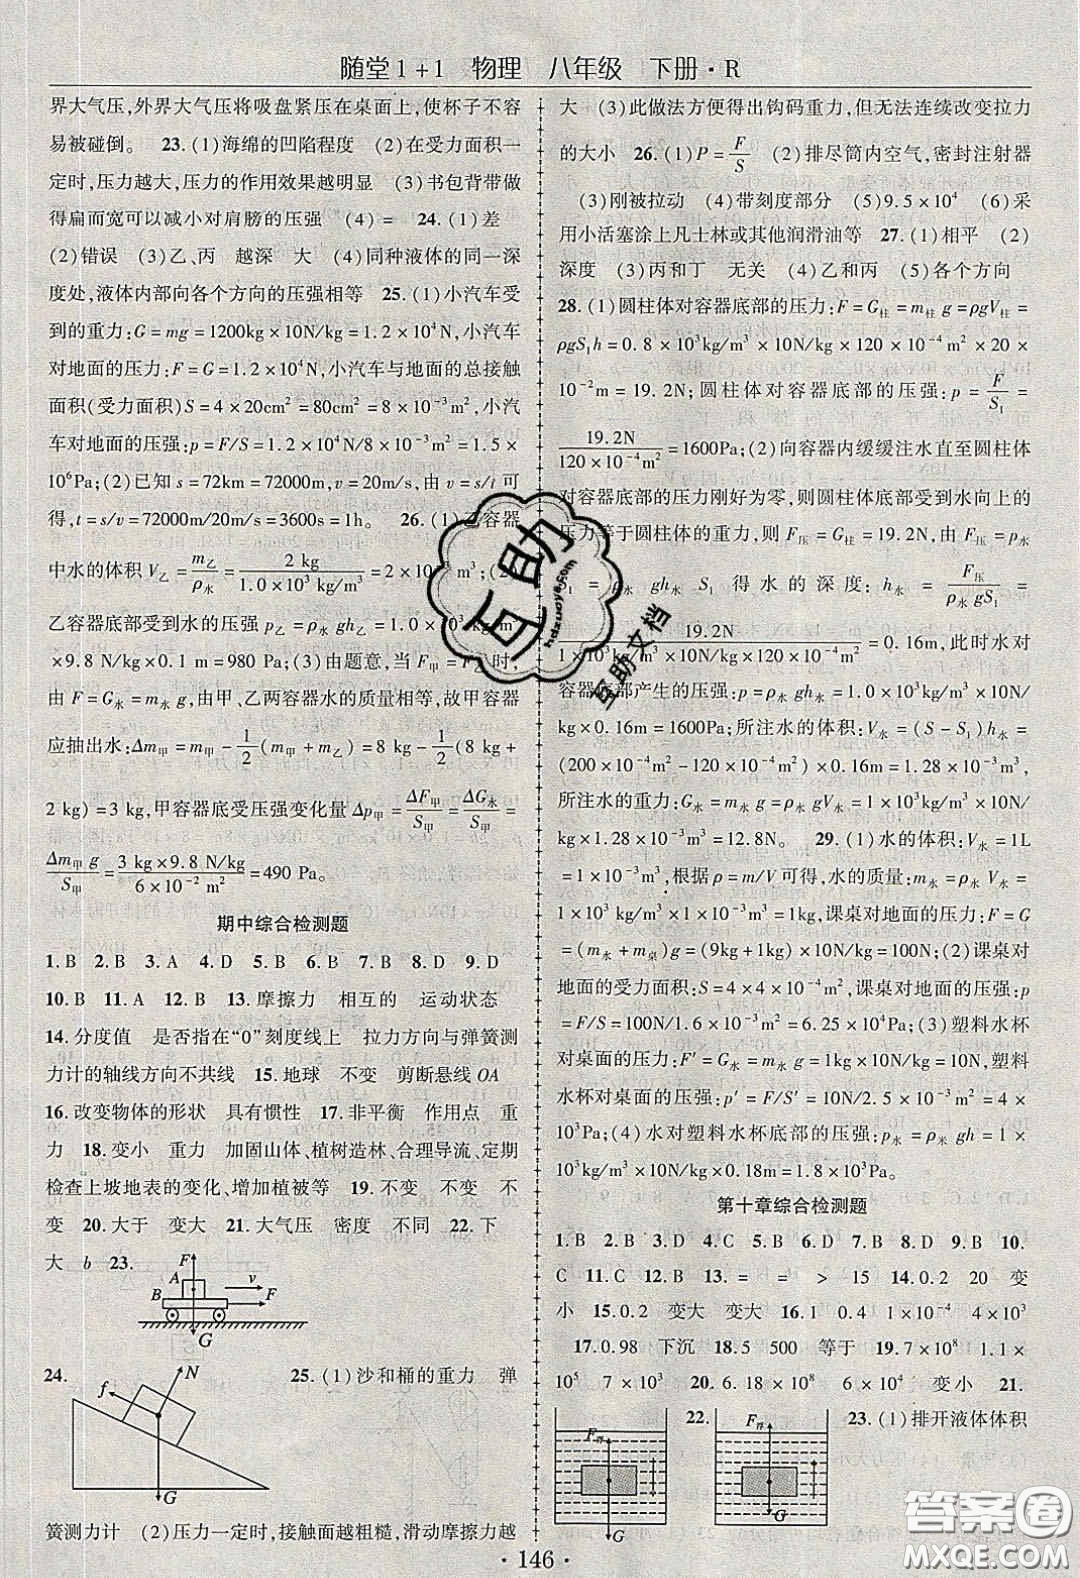 随堂1+1 物理 八年级 下册·R
界大气压,外界大气压将吸盘紧压在桌面上,使杯子不容
易被碰倒。 23.(1)海绵的凹陷程度 (2)在受力面积一
定时,压力越大,压力的作用效果越明显 (3)书包背带做
得扁而宽可以减小对肩膀的压强 (4)= 24.(1)差
(2)错误 (3)乙、丙 越深 大 (4)同种液体的同一
深度处,液体内部向各个方向的压强相等 25.(1)小汽车受
到的重力:G=mg=1200kg×10N/kg=1.2×10⁴N,小汽车
对地面的压力:F=G=1.2×10⁴N,小汽车与地面的总接触
面积(受力面积)S=4×20cm²=80cm²=8×10⁻³m²,小汽
车对地面的压强:p=F/S=1.2×10⁴N/8×10⁻³m²=1.5×
10⁶Pa;(2)已知 s=72km=72000m,v=20m/s,由 v=s/t 可
得,t=s/v=72000m/20m/s=3600s=1h。 26.(1)乙容器
中水的体积 V乙=m乙/ρ水=2 kg/1.0×10³kg/m³=2×10⁻³m³;(2)
乙容器底部受到水的压强 p乙=ρ水gh乙=1.0×10³kg/m³
×9.8 N/kg×0.1 m=980 Pa;(3)由题意,当 F甲=F乙时,
由 F=G水=m水 g,由甲、乙两容器水的质量相等,故甲容器
应抽出水:Δm甲=m甲-1/2(m甲+m乙)=8 kg-1/2(8 kg+
2 kg)=3 kg,甲容器底受压强变化量 Δp甲=ΔF甲/S甲=ΔG水/S甲=
Δm甲g/S甲=3 kg×9.8 N/kg/6×10⁻² m²=490 Pa。
期中综合检测题
1.B 2.B 3.A 4.D 5.B 6.B 7.C 8.D 9.D
10.B 11.A 12.B 13.摩擦力 相互的 运动状态
14.分度值 是否指在“0”刻度线上 拉力方向与弹簧测
力计的轴线方向不共线 15.地球 不变 剪断悬线OA
16.改变物体的形状 具有惯性 17.非平衡 作用点 重
力 18.变小 重力 加固山体、植树造林、合理导流、定期
检查上坡地表的变化、增加植被等 19.不变 不变 不
变 20.大于 变大 21.大气压 密度 不同 22.下
大 b 23.
F A v B F G
24.
f N G
25.(1)沙和桶的重力 弹
簧测力计 (2)压力一定时,接触面越粗糙,滑动摩擦力越
大 (3)此做法方便得出钩码重力,但无法连续改变拉力
的大小 26.(1)P=F/S (2)排尽筒内空气,密封注射器
(3)刚被拉动 (4)带刻度部分 (5)9.5×10⁴ (6)采
用小活塞涂上凡士林或其他润滑油等 27.(1)相平 (2)
深度 (3)丙和丁 无关 (4)乙和丙 (5)各个方向
28.(1)圆柱体对容器底部的压力:F=G柱=m柱 g=ρgV柱=
ρgS₁h=0.8×10³kg/m³×10N/kg×120×10⁻⁴m²×20×
10⁻²m=19.2N;圆柱体对容器底部的压强:p=F/S₁=
19.2N/120×10⁻⁴m²=1600Pa;(2)向容器内缓缓注水直至圆柱体
对容器底部的压力刚好为零,则圆柱体所受到水向上的
压力等于圆柱体的重力,则 F压=G柱=19.2N,由 F压=p水
S₁=ρ水 gh水 S₁ 得水的深度:h水=F压/ρ水gS₁=
19.2N/1×10³kg/m³×10N/kg×120×10⁻⁴m²=0.16m,此时水对
容器底部产生的压强:p=ρ水 gh水=1.0×10³kg/m³×10N/
kg×0.16m=1600Pa;所注水的体积:V水=(S-S₁)h水=
(200×10⁻⁴m²-120×10⁻⁴m²)×0.16m=1.28×10⁻³m³,
所注水的重力:G水=m水 g=ρ水 gV水=1.0×10³kg/m³×10N/
kg×1.28×10⁻³m³=12.8N。 29.(1)水的体积:V水=1L
=1×10⁻³m³,根据 ρ=m/V 可得,水的质量:m水=ρ水 V水=
1.0×10³kg/m³×1×10⁻³m³=1kg,课桌对地面的压力:F=G
=(m水+m桌)g=(9kg+1kg)×10N/kg=100N;(2)课桌对
地面的受力面积:S=4×4×10⁻⁴m²,课桌对地面的压强:p
=F/S=100N/16×10⁻⁴m²=6.25×10⁴Pa;(3)塑料水杯
对桌面的压力:F′=G水=m水 g=1kg×10N/kg=10N,塑料
水杯对桌面的压强:p′=F′/S′=10N/2.5×10⁻³m²=4×
10³Pa;(4)水对塑料水杯底部的压强:p水=ρ米 gh=1×
10³kg/m³×10N/kg×0.18m=1.8×10³Pa。
第十章综合检测题
1.B 2.B 3.D 4.C 5.B 6.D 7.B 8.D 9.B 10.
C 11.C 12.B 13.= = > 15 14.0.2 20 变
小 15.0.2 变大 变大 16.1 0.4 1×10⁻⁴ 4×10³
17.0.98 下沉 18.5 500 等于 19.7×10⁸ 1.1×
10⁵ 7×10³ 20.6.18×10⁸ 6×10⁴ 变小 21.
F浮 G
22.
F浮 G
23.(1)排开液体体积
·146·
互助
hdzuoye.com
互助文档
答案圈
MXQE.COM